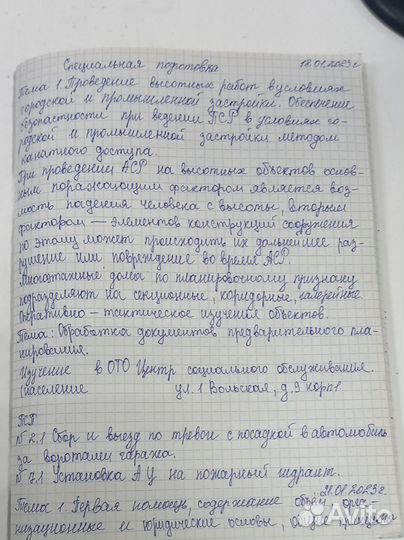 Специальная подготовка 18.01.2023г
Тема 1. Проведение высотных работ в условиях
городской и промышленной застройки. Обеспечение
безопастности при ведении ПСР в условиях го-
родской и промышленной застройки методом
канатного доступа.
При проведении АСР на высотных объектов основ-
ным поражающим фактором является воз-
мость падения человека с высоты, вторым
фактором — элементов конструкций сооружения
по этому может происходить их дальнейшее раз-
рушение или повреждение во время АСР.
Многоэтажные дома по планировочному признаку
подразделяют на секционные, коридорные, галерейные
Оперативно – тактическое изучения объектов.
Тема: Обработка документов предварительного пла-
нирования.
Изучение в ОТО Центр социального обслуживания.
(население ул. 1 Вольская, д. 9 корп1.
ПСР
№ 2.1 Сбор и выезд по тревоги с посадкой в автомобиль
за воротами гаража.
№ 7.1 Установка АЦ на пожарный гидрант.
21.01.2023г
Тема 1. Первая помощь, содержание объём орга-
низационные и юридические основы, общие принципы
Avito